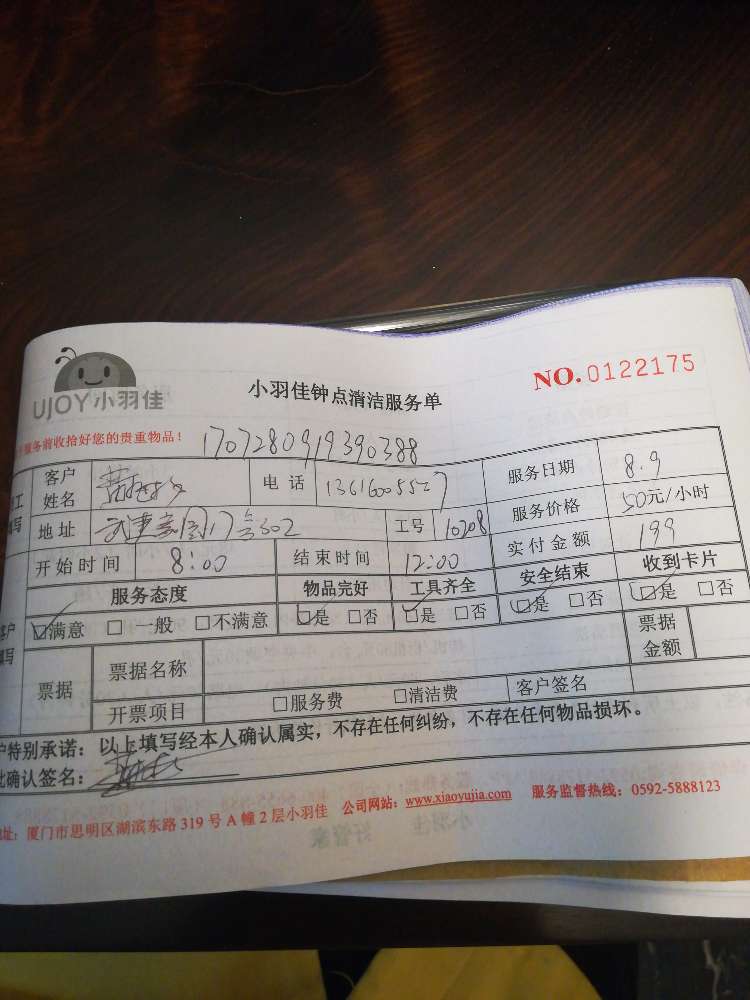 UJOY小羽佳
小羽佳钟点清洁服务单
NO.0122175
服务前收拾好您的贵重物品！
1707280919390388
客户姓名 电话 13616005527 服务日期 8.9
地址 园17 302 工号 10208 服务价格 50元/小时
开始时间 8:00 结束时间 12:00 实付金额 199
服务态度 物品完好 工具齐全 安全结束 收到卡片
☑满意 □一般 □不满意 ☑是 □否 ☑是 □否 ☑是 □否 ☑是 □否
票据 票据名称 票据金额
开票项目 □服务费 □清洁费 客户签名
户特别承诺：以上填写经本人确认属实，不存在任何纠纷，不存在任何物品损坏。
确认签名：
址：厦门市思明区湖滨东路319号A幢2层小羽佳 公司网站：www.xiaoyujia.com 服务监督热线：0592-5888123